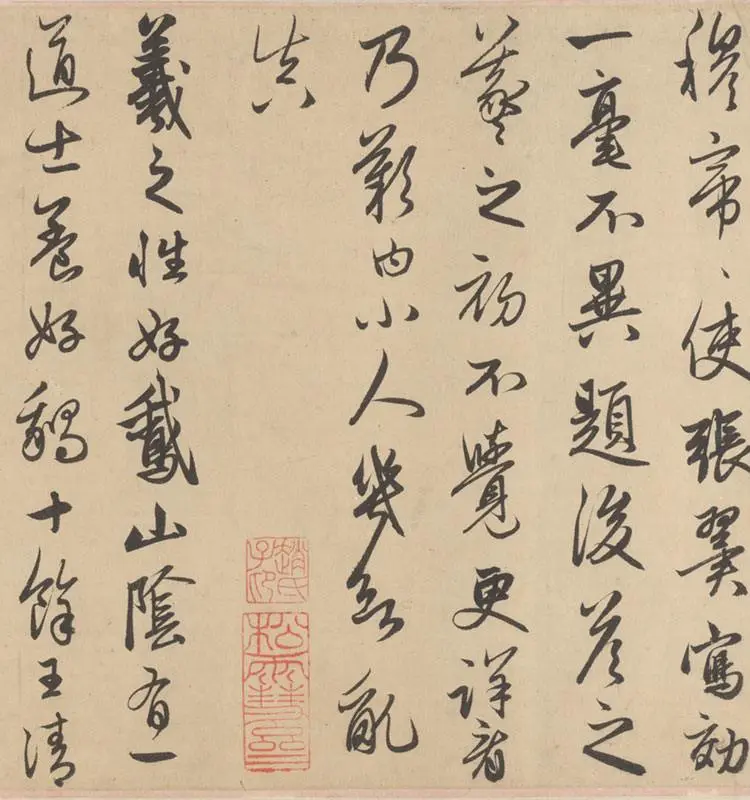 穆帝〻使張翼寫効
一毫不異題後答之
羲之初不覺更詳看
乃歎曰小人幾欲亂
真
趙氏子昂
松雪齋
羲之性好鵞山陰有一
道士養好鵝十餘王清